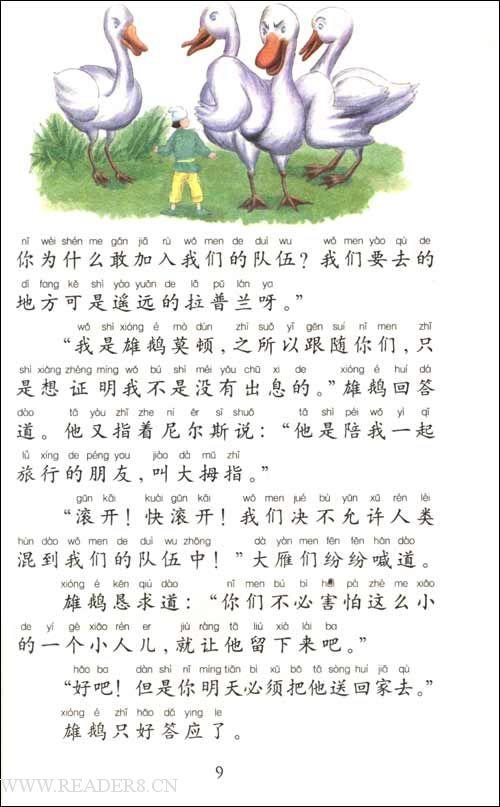 nǐ wèi shén me gǎn jiā rù wǒ men de duì wu wǒ men yào qù de
你为什么敢加入我们的队伍？我们要去的
dì fang kě shì yáo yuǎn de lā pǔ lán ya
地方可是遥远的拉普兰呀。”
wǒ shì xióng é mò dùn zhī suǒ yǐ gēn suí nǐ men zhǐ
“我是雄鹅莫顿，之所以跟随你们，只
shì xiǎng zhèng míng wǒ bú shì méi yǒu chū xi de xióng é huí dá
是想证明我不是没有出息的。”雄鹅回答
dào tā yòu zhǐ zhe ní ěr sī shuō tā shì péi wǒ yì qǐ
道。他又指着尼尔斯说：“他是陪我一起
lǚ xíng de péng you jiào dà mǔ zhǐ
旅行的朋友，叫大拇指。”
gǔn kāi kuài gǔn kāi wǒ men jué bù yǔn xǔ rén lèi
“滚开！快滚开！我们决不允许人类
hùn dào wǒ men de duì wu zhōng dà yàn men fēn fēn hǎn dào
混到我们的队伍中！”大雁们纷纷喊道。
xióng é kěn qiú dào nǐ men bú bì hài pà zhè me xiǎo
雄鹅恳求道：“你们不必害怕这么小
de yí gè xiǎo rén er jiù ràng tā liú xià lái ba
的一个小人儿，就让他留下来吧。”
hǎo ba dàn shì nǐ míng tiān bì xū bǎ tā sòng huí jiā qù
“好吧！但是你明天必须把他送回家去。”
xióng é zhǐ hǎo dā ying le
雄鹅只好答应了。
9
WWW.READER8.CN